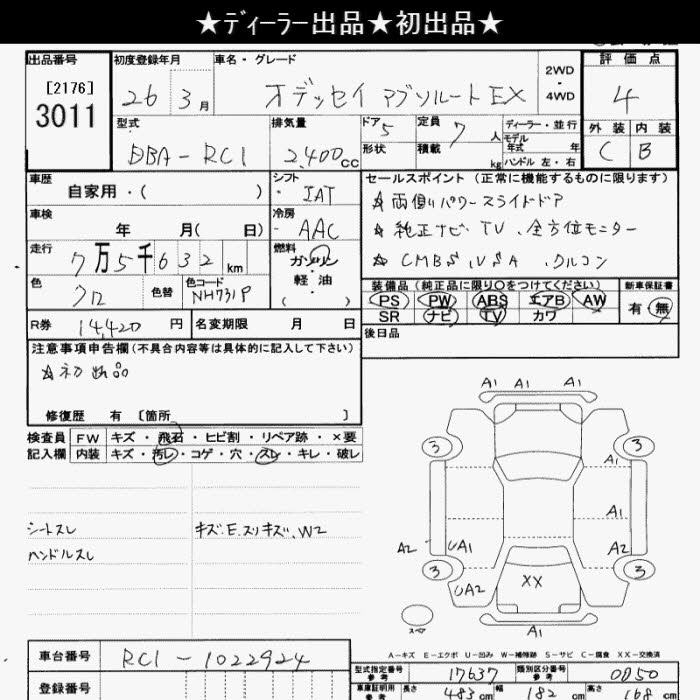 ★ディーラー出品★初出品★
出品番号 初度登録年月 車名・グレード 評価点
[2176] 2WD
3011 26 3月 オデッセイ アブソルートEX 4WD 4
型式 排気量 ドア 5 定員 7 人 ディーラー・並行 外装 内装
モデル年式 年
DBA-RC1 2,400cc 形状 積載 kg ハンドル 左・右 C B
車歴 シフト セールスポイント (正常に機能するものに限ります)
自家用・( ) IAT ☆両側パワースライドドア
車検 冷房 ☆純正ナビ、TV、全方位モニター
年 月( 日) AAC ☆CMBS、VSA、クルコン
走行 燃料
7万5千632km ガソリン
色 色替 色コード 軽油 装備品(純正品に限り○をつけてください) 新車保証書
クロ NH731P ・( ) PS PW ABS エアB AW 有・無
R券 14,420円 名変期限 月 日 SR ナビ TV カワ
注意事項申告欄(不具合内容等は具体的に記入して下さい) 後日品
☆初出品
修復歴 有 [箇所 ]
検査員 FW キズ・飛石・ヒビ割・リペア跡・×要
記入欄 内装 キズ・汚レ・コゲ・穴・スレ・キレ・破レ
シートスレ キズ.E.スリキズ、W2
ハンドルスレ
A1 A1 A1
3 3
A1
A1
A2 UA1 A2
3 3
UA2 XX
スペア A1
A-キズ E-エクボ U-凹み W-補修跡 S-サビ C-腐食 XX-交換済
車台番号 RC1-1022924
型式指定番号 参考 17637 類別区分番号 参考 0050
登録番号 車庫証明用 参考 長さ 483cm 幅 182cm 高さ 168cm